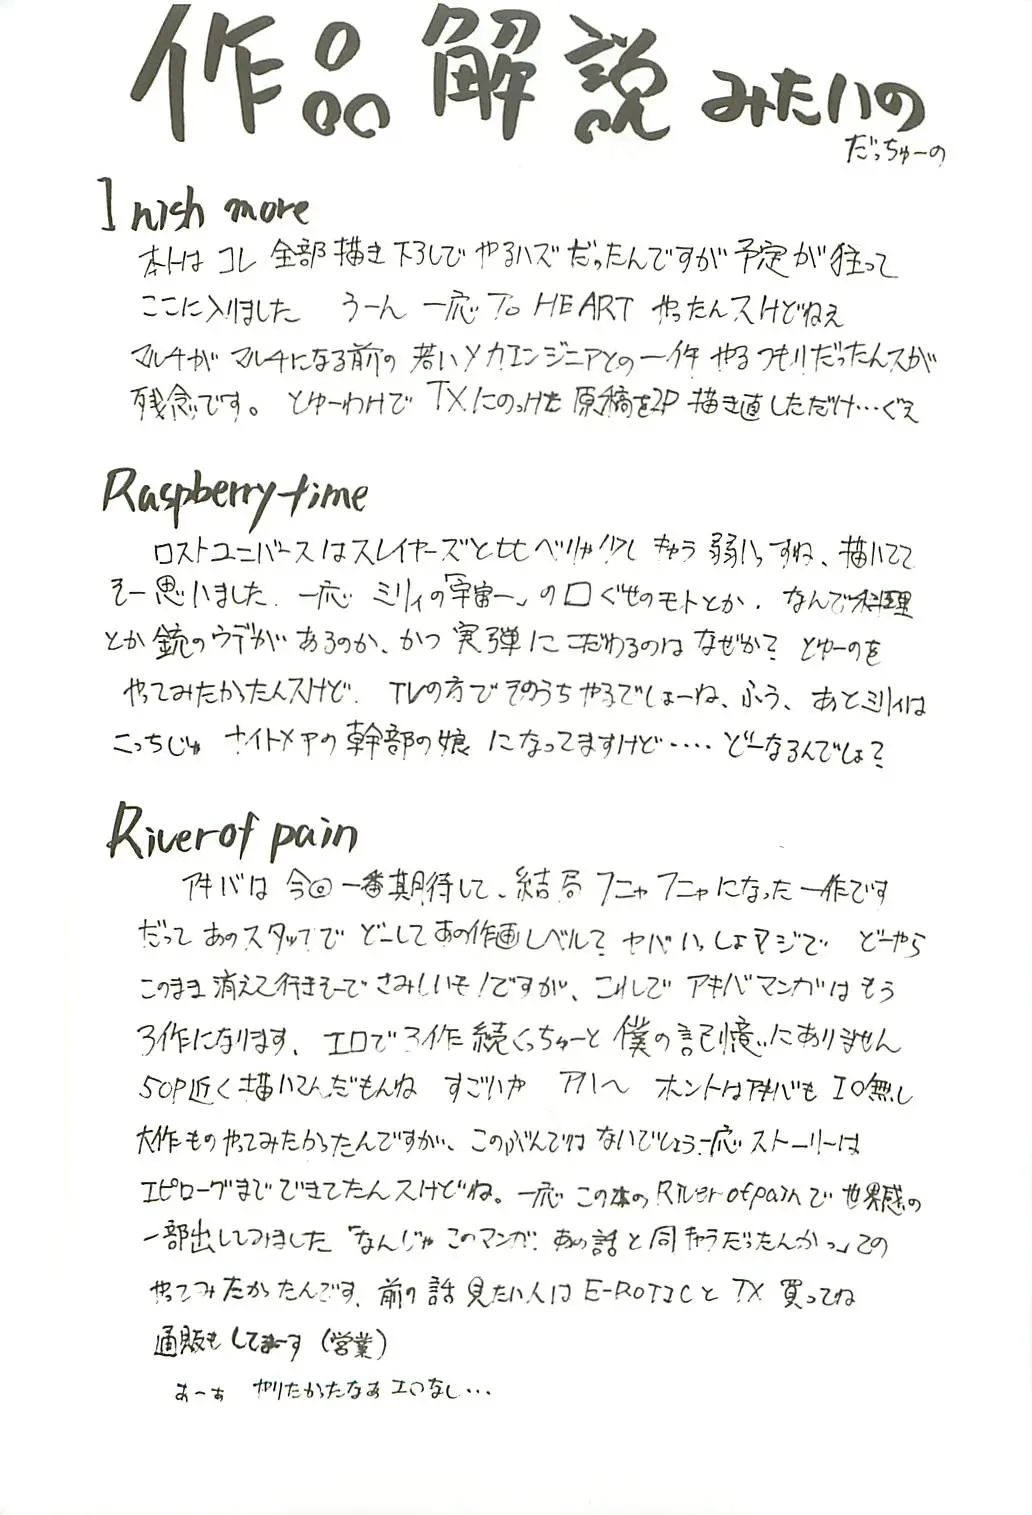 作品解説みたいの
だっちゅーの
I wish more
本トは コレ 全部描き下ろしで やるハズだったんですが予定が狂って
ここに入りました うーん 一応 To HEART やったんスけどねえ
マルチが マルチになる前の 若いメカエンジニアとの一件 やるつもりだったんスが
残念です。 とゆーわけで TXにのっけた原稿を2P 描き直しただけ…ぐえ
Raspberry time
ロストユニバースはスレイヤーズと比べりゃ少しキャラ弱いっすね、描いてて
そー思いました. 一応 ミリィの「宇宙一」の口ぐせのモトとか. なんで料理
とか銃のウデがあるのか、かつ実弾にこだわるのはなぜか? とゆーのを
やってみたかったんスけど. TVの方でそのうちやるでしょーね、ふう、あとミリィは
こっちじゃ ナイトメアの幹部の娘 になってますけど‥‥ どーなるんでしょ?
River of pain
アキバは 今回一番期待して、結局 フニャフニャになった一作です
だって あのスタッフで どーしてあの作画レベル? ヤバいっしょマジで どーやら
このまま消えて行きそーで さみしいそ!ですが、これしで アキバマンガはもう
3作になります、エロで3作 続くっちゅーと 僕の記憶にありません
50P近く描いてんだもんね すごいや アハヘ ホントはアキバも エロ無し
大作ものやってみたかったんですが、このぶんではないでしょう.一応ストーリーは
エピローグまでできてたんスけどね。一応 この本のRiver of painで世界感の
一部出してみました「なんじゃこのマンガ. あの話と同キャラだったんかっ」ての
やってみたかったんです. 前の話見たい人は E-ROTICと TX 買ってね
通販もしてまーす(営業)
あーぁ やりたかったなあエロなし…